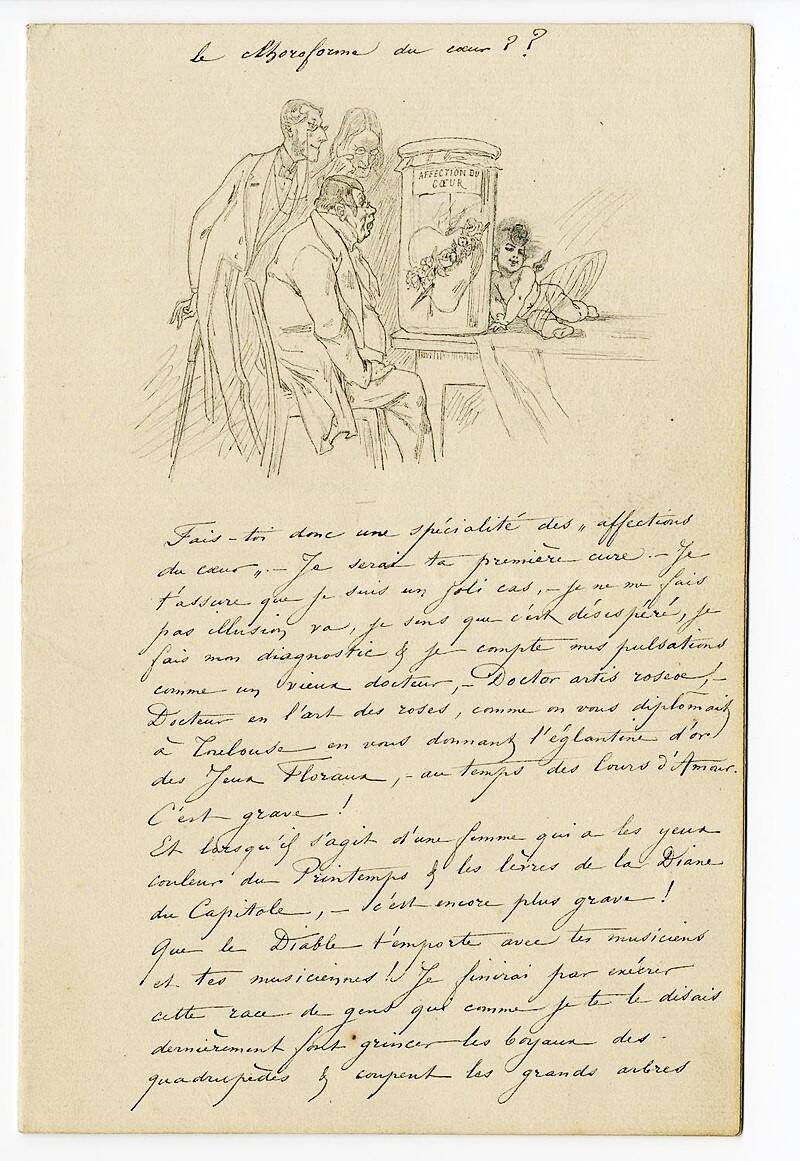 le Chloroforme du cœur ??
AFFECTION DU
CŒUR
Fais-toi donc une spécialité des „ affections
du cœur „ — Je serai ta première cure. — Je
t'assure que je suis un joli cas, — je ne me fais
pas illusion va, je sens que c'est désespéré, je
fais mon diagnostic & je compte mes pulsations
comme un vieux docteur, — Doctor artis roseæ, —
Docteur en l'art des roses, comme on vous diplômait
à Toulouse en vous donnant l'églantine d'or
des Jeux Floraux, — au temps des Cours d'Amour.
C'est grave !
Et lorsqu'il s'agit d'une femme qui a les yeux
couleur du Printemps & les lèvres de la Diane
du Capitole, — c'est encore plus grave !
Que le Diable t'emporte avec tes musiciens
et tes musiciennes ! Je finirai par exécrer
cette race de gens qui comme je te le disais
dernièrement font grincer les boyaux des
quadrupèdes & coupent les grands arbres